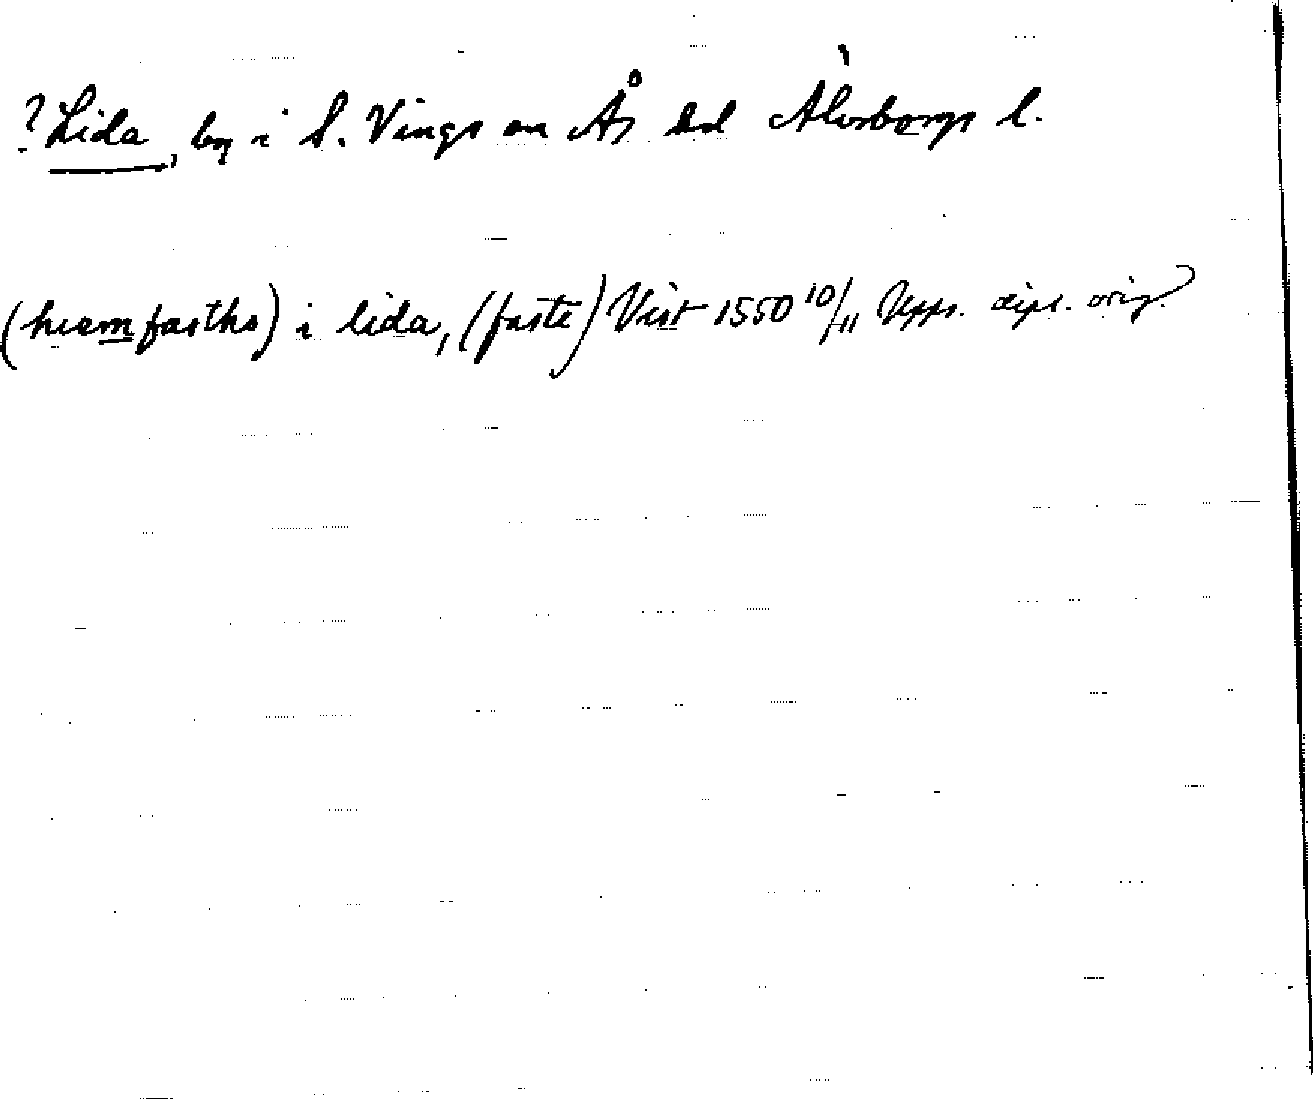 ?Lida, by i S. Vings sn Ås hd Älvsborgs l.
(hiemfasths) i lida, (faste) Vist 1550 10/11 Upps. dipl. orig.